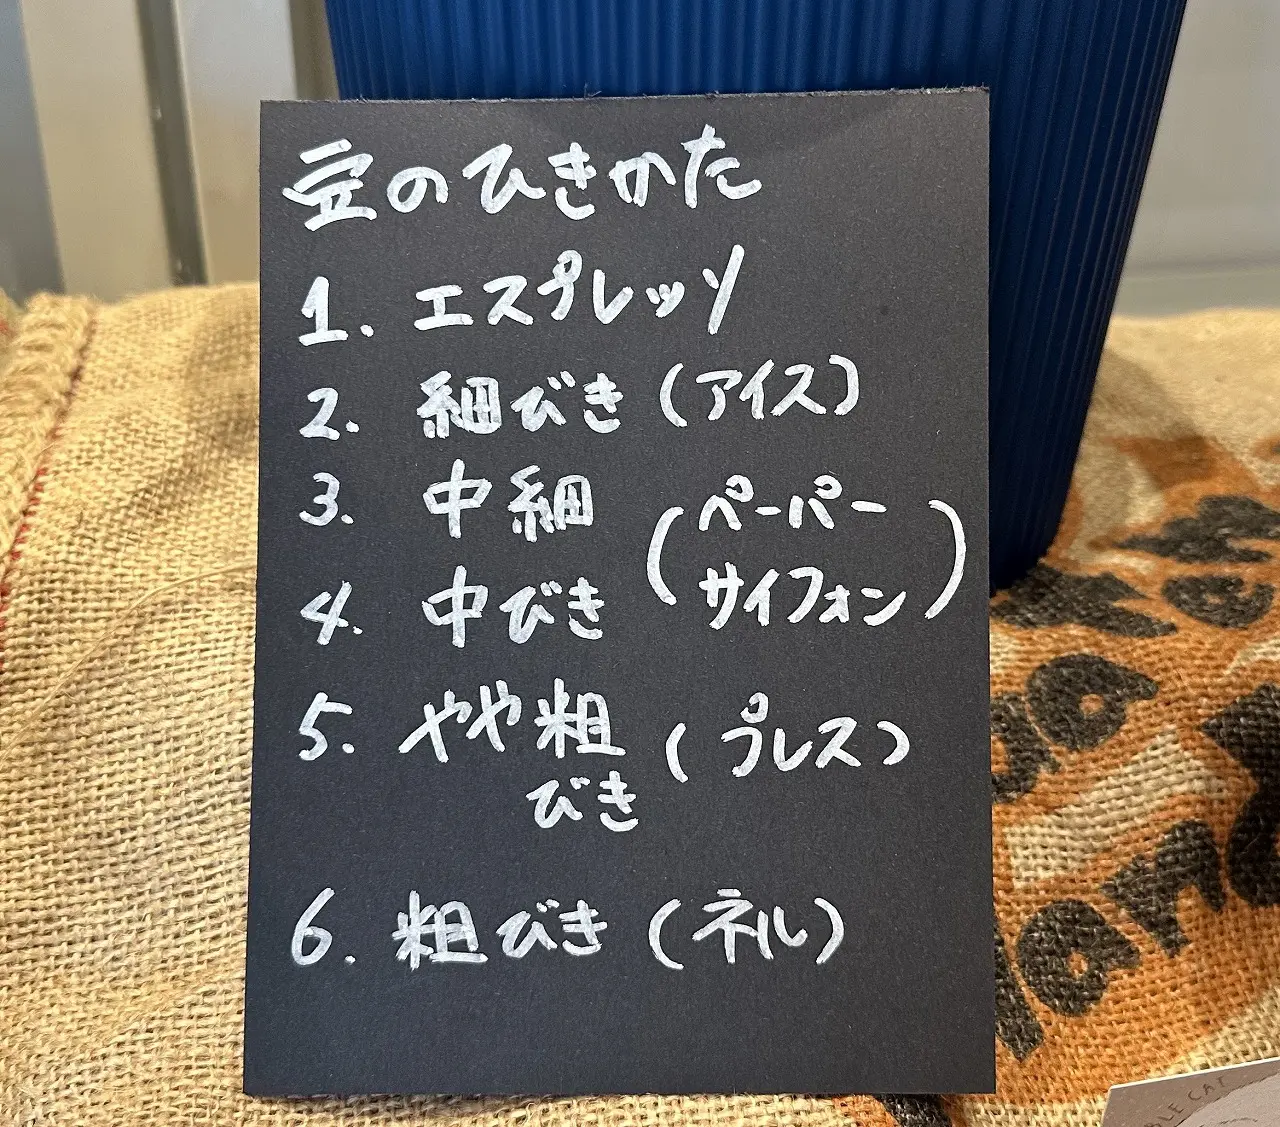 豆のひきかた
1. エスプレッソ
2. 細びき (アイス)
3. 中細 (ペーパー
4. 中びき サイフォン)
5. やや粗びき (プレス)
6. 粗びき (ネル)
BLE CAT